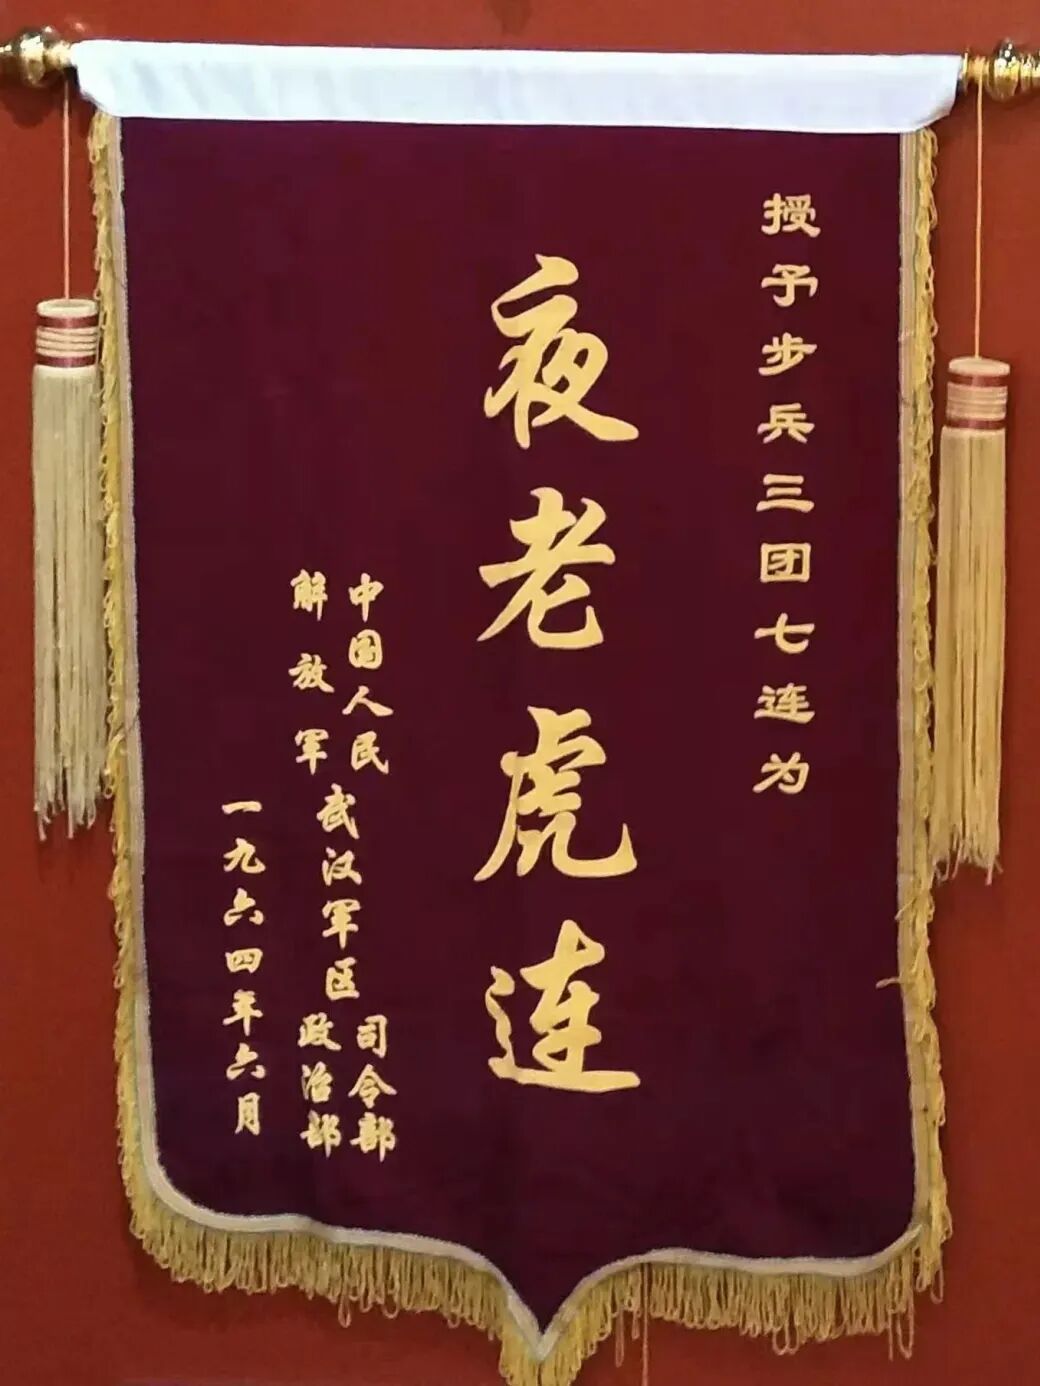 授予步兵三团七连为
夜老虎连
中国人民
解放军
武汉军区
司令部
政治部
一九六四年六月